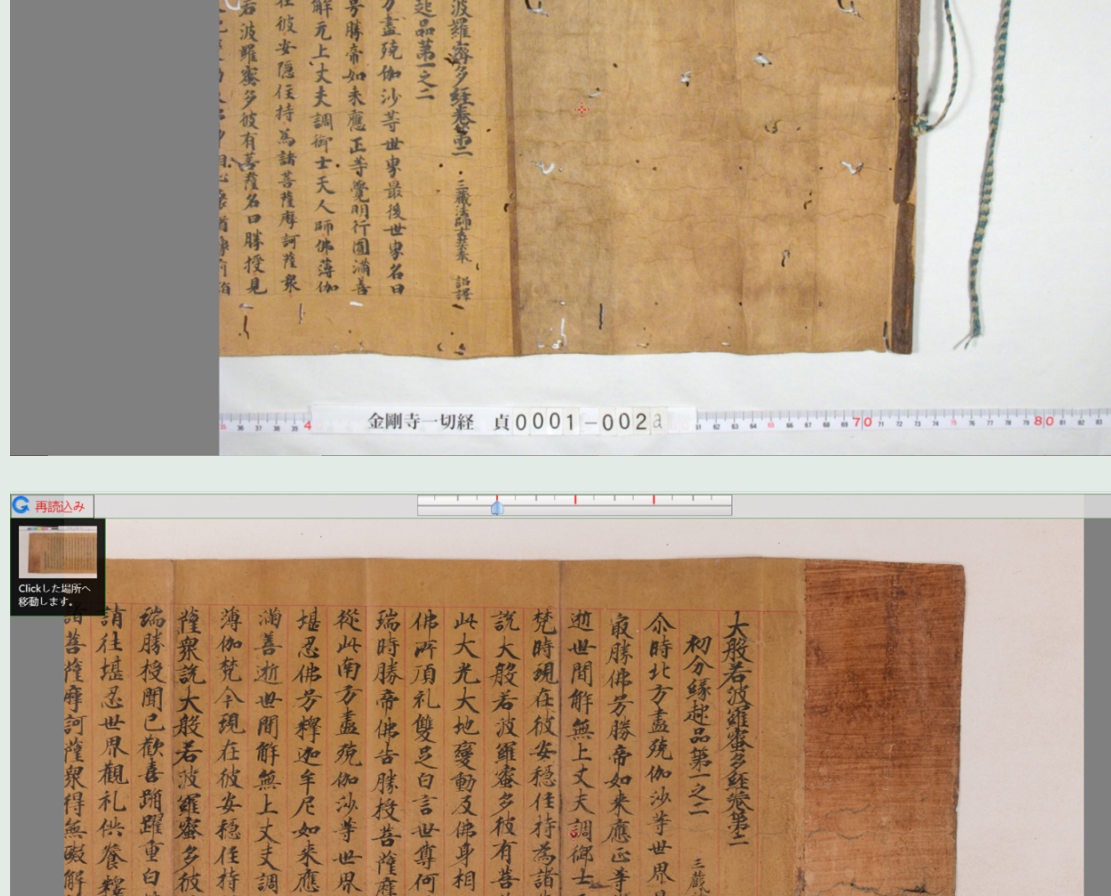 波羅蜜多経巻第二 三藏法師玄奘奉 詔譯
起品第一之二
方盡殑伽沙等世界最後世界名曰
号勝帝如来應正等覺明行圓滿善
解无上丈夫調御士天人師佛薄伽
在彼安隱住持為諸菩薩摩訶薩衆
若波羅蜜多彼有菩薩名曰勝授見
36 37 38 39 4
金剛寺一切経 貞0001-002a
61 62 63 64 65 66 67 68 69 70 71 72 73 74 75 76 77 78 79 80 81 82 83
再読込み
Clickした場所へ
移動します。
大般若波羅蜜多經卷第二
初分縁起品第一之二 三藏
尒時北方盡殑伽沙等世界
最勝佛号勝帝如來應正等
逝世間解無上丈夫調御士
梵時現在彼安穩住持為諸
説大般若波羅蜜多彼有菩
此大光大地變動及佛身相
佛所頂礼雙足白言世尊何
瑞時勝帝佛告勝授菩薩摩
從此南方盡殑伽沙等世界
堪忍佛号釋迦牟尼如來應
滿善逝世間解無上丈夫調
薄伽梵今現在彼安穩住持
薩衆説大般若波羅蜜多彼
瑞勝授聞已歡喜踊躍重白
請往堪忍世界觀礼供養釋
諸菩薩摩訶薩衆得無礙解